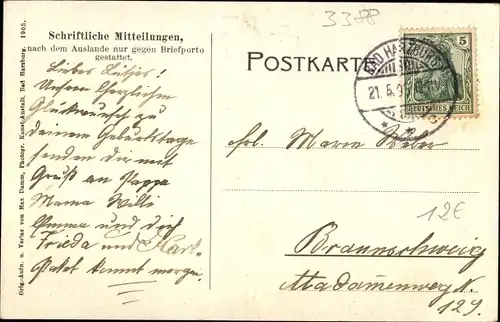 3388
Schriftliche Mitteilungen,
nach dem Auslande nur gegen Briefporto
gestattet.
POSTKARTE
5
DEUTSCHES REICH
BAD HARZBURG
21.5.0
Orig.-Aufn. u. Verlag von Max Damm, Photogr. Kunst-Anstalt, Bad Harzburg. 1905.
Unsern herzlichen
Glückwunsch zu
deinem Geburtstage
senden dir mit
Gruß an Pappa
Mama Willi
Emma und dich
Frieda und Karl.
Paket kommt morgen.
Frl. Marie Weber
12€
Braunschweig
Madamenweg N.
129.